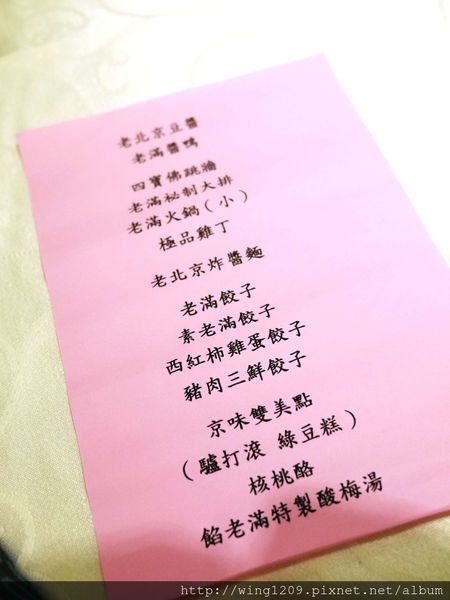 老北京豆醬
老滿醬鴨
四寶佛跳牆
老滿祕制大排
老滿火鍋(小)
極品雞丁
老北京炸醬麵
老滿餃子
素老滿餃子
西紅柿雞蛋餃子
豬肉三鮮餃子
京味雙美點
(驢打滾 綠豆糕)
核桃酪
餡老滿特製酸梅湯
http://wing1209.pixnet.net/album